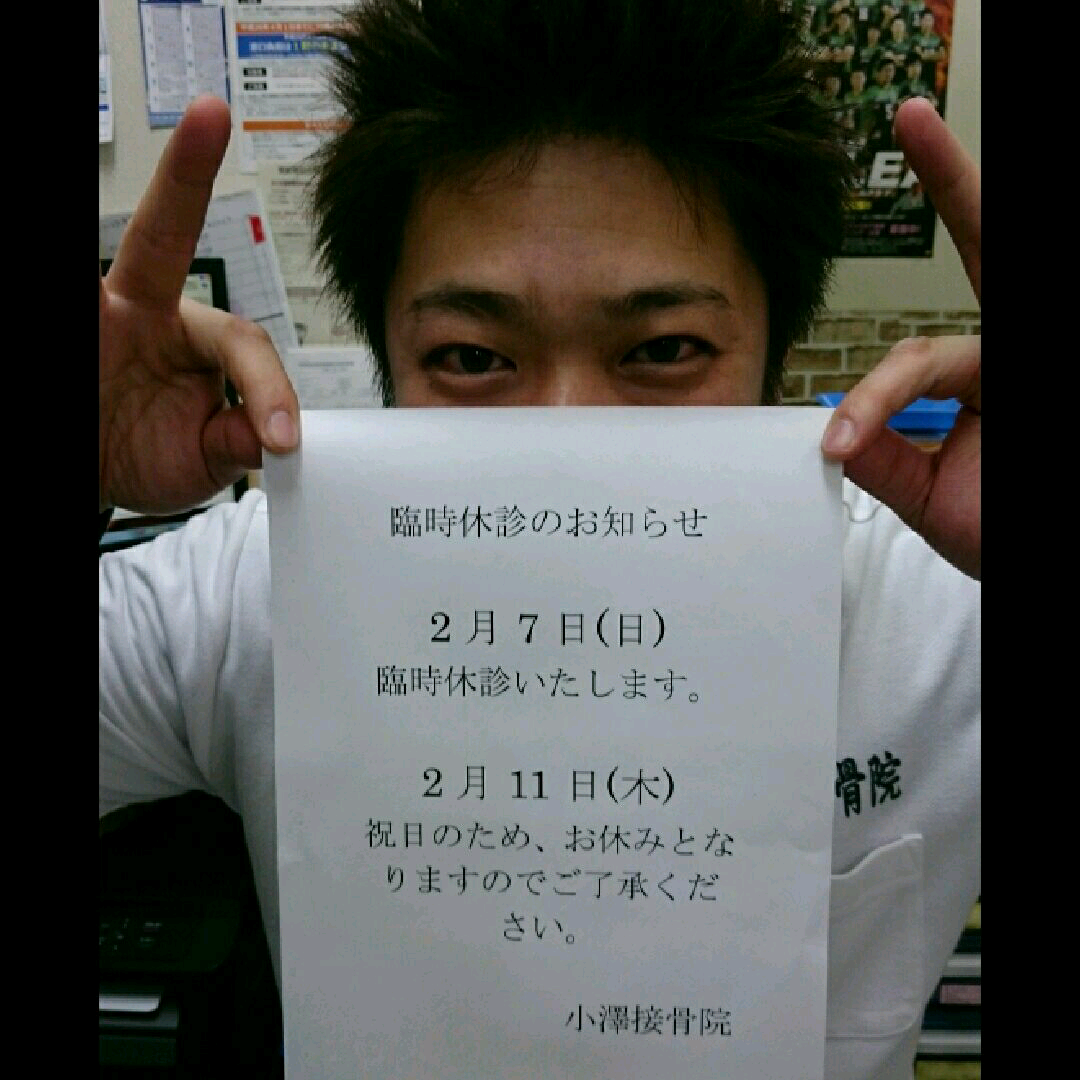 臨時休診のお知らせ
2月7日(日)
臨時休診いたします。
2月11日(木)
祝日のため、お休みとな
りますのでご了承くだ
さい。
小澤接骨院
骨院